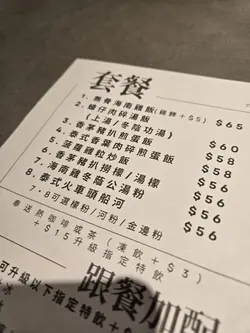 套餐
1. 無骨海南雞飯(雞髀+$5) $65
2. 蠔仔肉碎湯飯
(上湯/冬陰功湯) $60
3. 香茅豬扒煎蛋飯 $58
4. 泰式香葉肉碎煎蛋飯 $58
5. 菠蘿雞粒炒飯 $56
6. 香茅豬扒撈檬/湯檬 $56
7. 海南雞冬蔭公湯粉 $56
8. 泰式火車頭船河 $56
7, 8可選檬粉/河粉/金邊粉
奉送熱咖啡或茶(凍飲+$3)
+$15升級指定特飲
跟餐加配
可升級以下指定特飲+